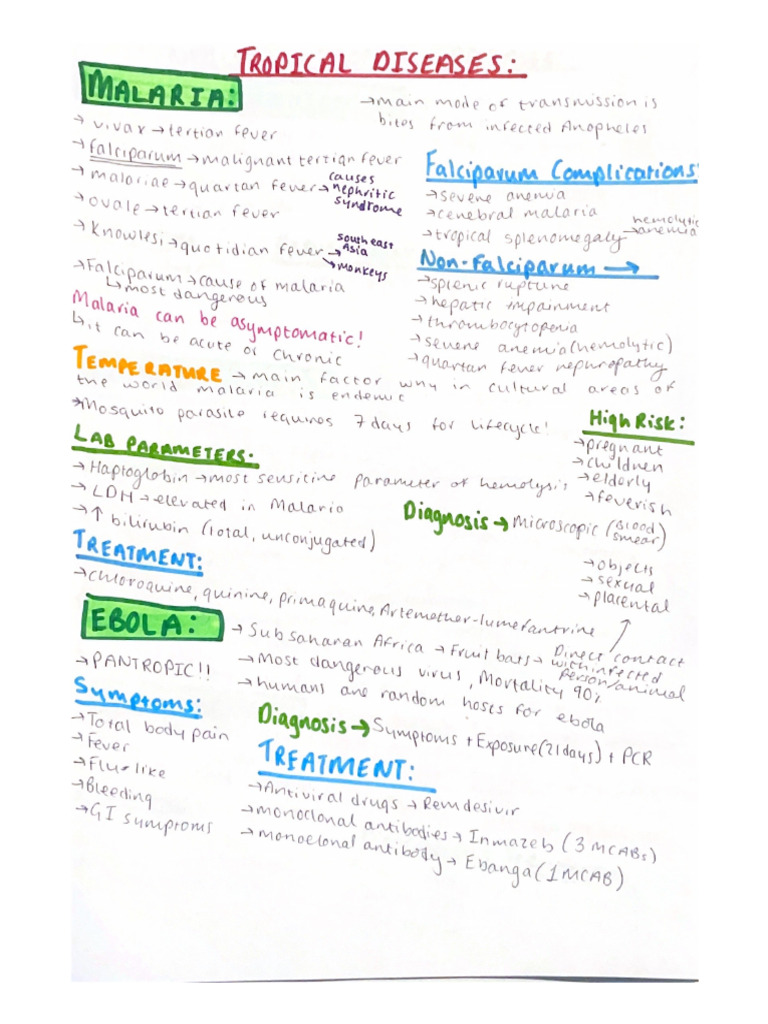 TROPICAL DISEASES:
MALARIA:
→main mode of transmission is
bites from infected Anopheles
→ vivax → tertian fever
→ falciparum → malignant tertian fever
→ malariae → quartan fever → causes
nephritic
syndrome
→ ovale → tertian fever
→ Knowlesi → quotidian fever → southeast
Asia
→ monkeys
→ Falciparum → cause of malaria
↳ most dangerous
Malaria can be asymptomatic!
↳ it can be acute or chronic
Falciparum Complications:
→ severe anemia
→ cerebral malaria
→ tropical splenomegaly → hemolytic
anemia
Non-Falciparum →
→ splenic rupture
→ hepatic impairment
→ thrombocytopenia
→ severe anemia (hemolytic)
→ quartan fever nephropathy
TEMPERATURE → main factor why in cultural areas of
the world malaria is endemic
→ Mosquito parasite requires 7 days for lifecycle!
High Risk:
→ pregnant
→ children
→ elderly
→ feverish
LAB PARAMETERS:
→ Haptoglobin → most sensitive parameter of hemolysis
→ LDH → elevated in Malaria
→ ↑ bilirubin (total, unconjugated)
Diagnosis → Microscopic (Blood
smear)
TREATMENT:
→ chloroquine, quinine, primaquine, Artemether-lumefantrine
→ objects
→ sexual
→ placental
EBOLA:
→ Sub saharan Africa → Fruit bats → Direct contact
with infected
person/animal
→ PANTROPIC!!
→ Most dangerous virus, Mortality 90%
→ humans are random hosts for ebola
Symptoms:
→ Total body pain
→ Fever
→ Flu-like
→ Bleeding
→ GI symptoms
Diagnosis → Symptoms + Exposure (21 days) + PCR
TREATMENT:
→ Antiviral drugs → Remdesivir
→ monoclonal antibodies → Inmazeb (3 MCABs)
→ monoclonal antibody → Ebanga (1 MCAB)